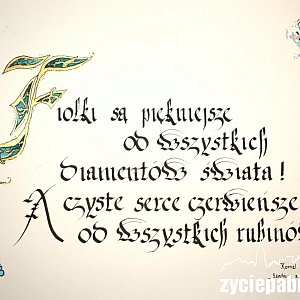 Fiołki są piękniejsze
od wszystkich
diamentów świata!
A czyste serce czerwieńsze
od wszystkich rubinó
Kornel
życiepabi